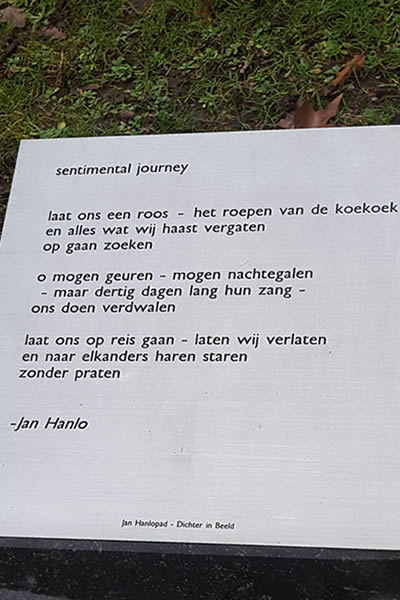 sentimental journey
laat ons een roos - het roepen van de koekoek
en alles wat wij haast vergaten
op gaan zoeken
o mogen geuren - mogen nachtegalen
- maar dertig dagen lang hun zang -
ons doen verdwalen
laat ons op reis gaan - laten wij verlaten
en naar elkanders haren staren
zonder praten
-Jan Hanlo
Jan Hanlopad - Dichter in Beeld